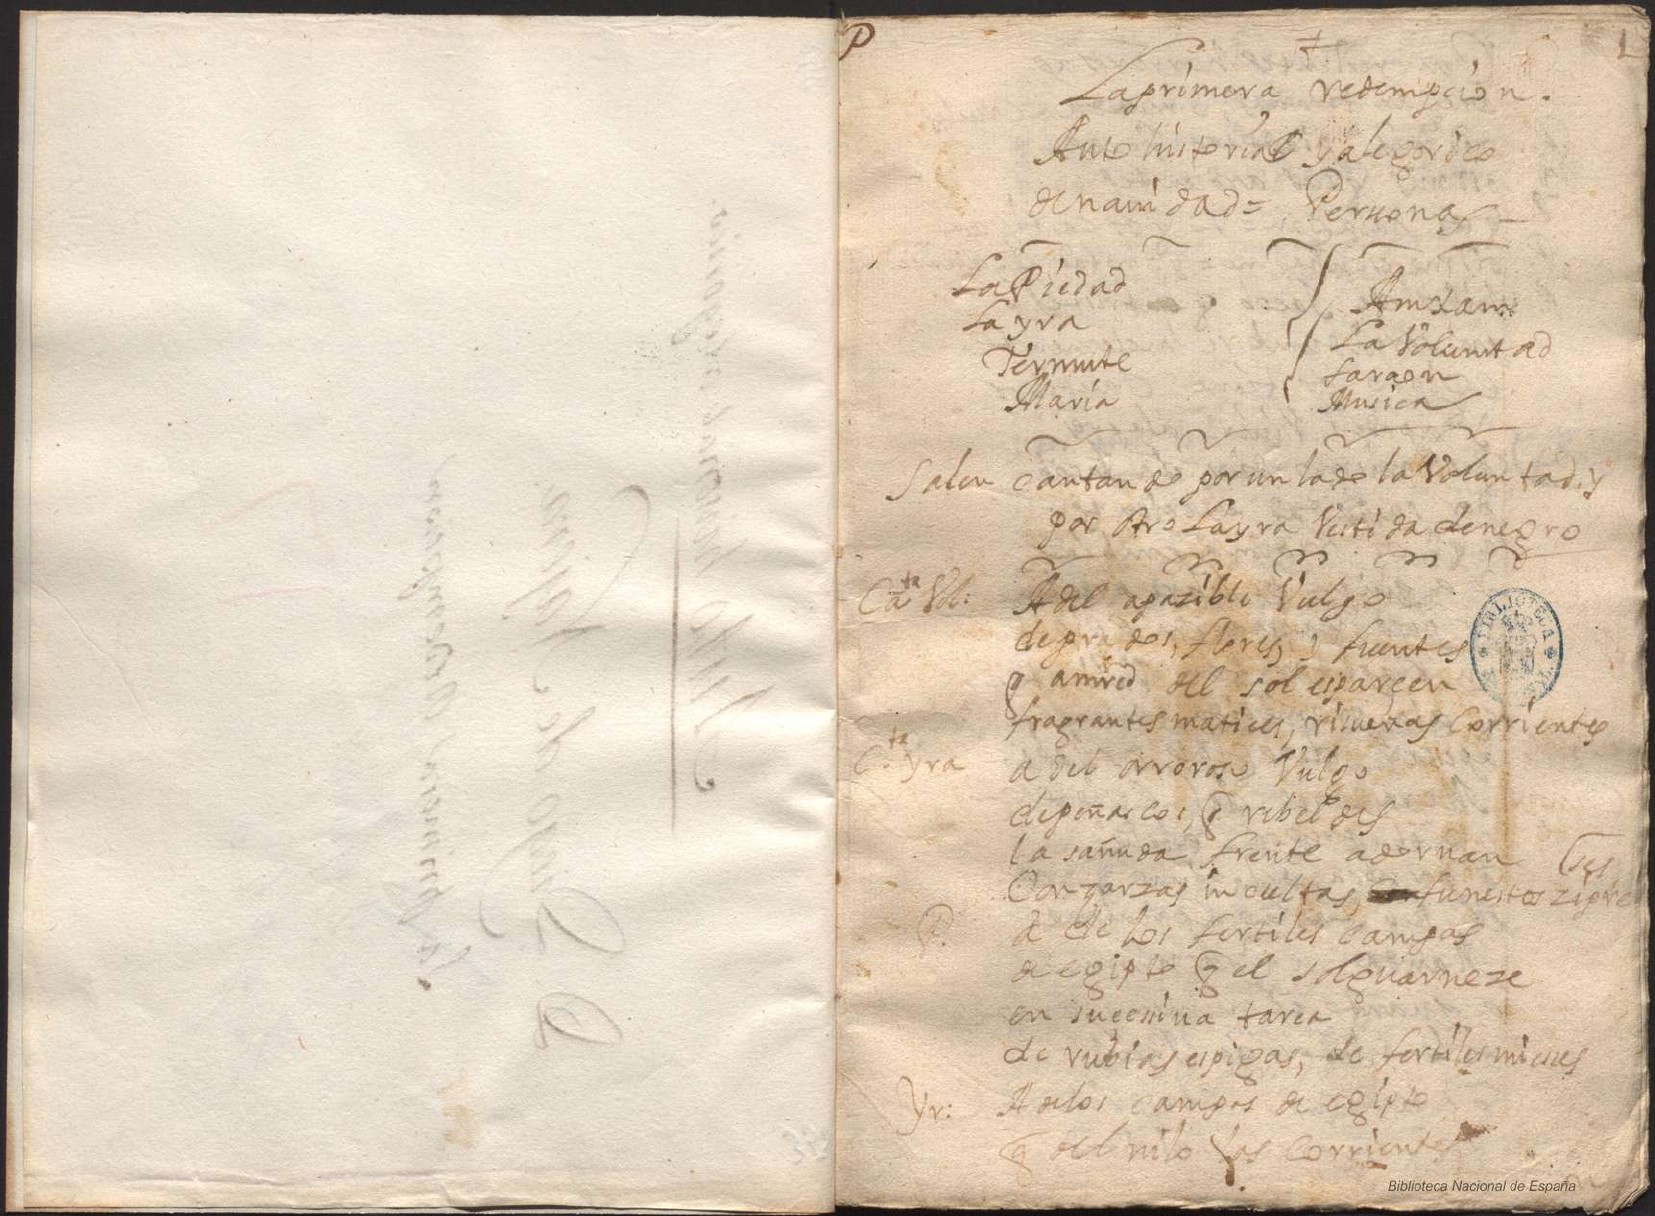 P
1
La primera redempcion.
Auto historial y alegorico
de navidad= Personas
La Piedad
La yra
Termute
Maria
Amram
La Voluntad
faraon
Musica
Salen cantando por un lado la Voluntad, y
por otro La yra Vestida de negro
Cta Vol:
A del apazible Vulgo
de prados, flores, y fuentes
q a mrĕd del sol esparcen
fragrantes matices, risueñas Corrientes
Cta yra
a del orroroso Vulgo
de peñascos, q rebeldes
la sañuda frente adornan
Con zarzas incultas, funestos zipre
ses
P.
A de los fertiles campos
de egipto q el sol guarneze
en sucesiva tarea
de rubias espigas, de fertiles mieses
Yr:
A de los campos de egipto
q del nilo las Corrientes
BIBLIOTECA
Biblioteca Nacional de España